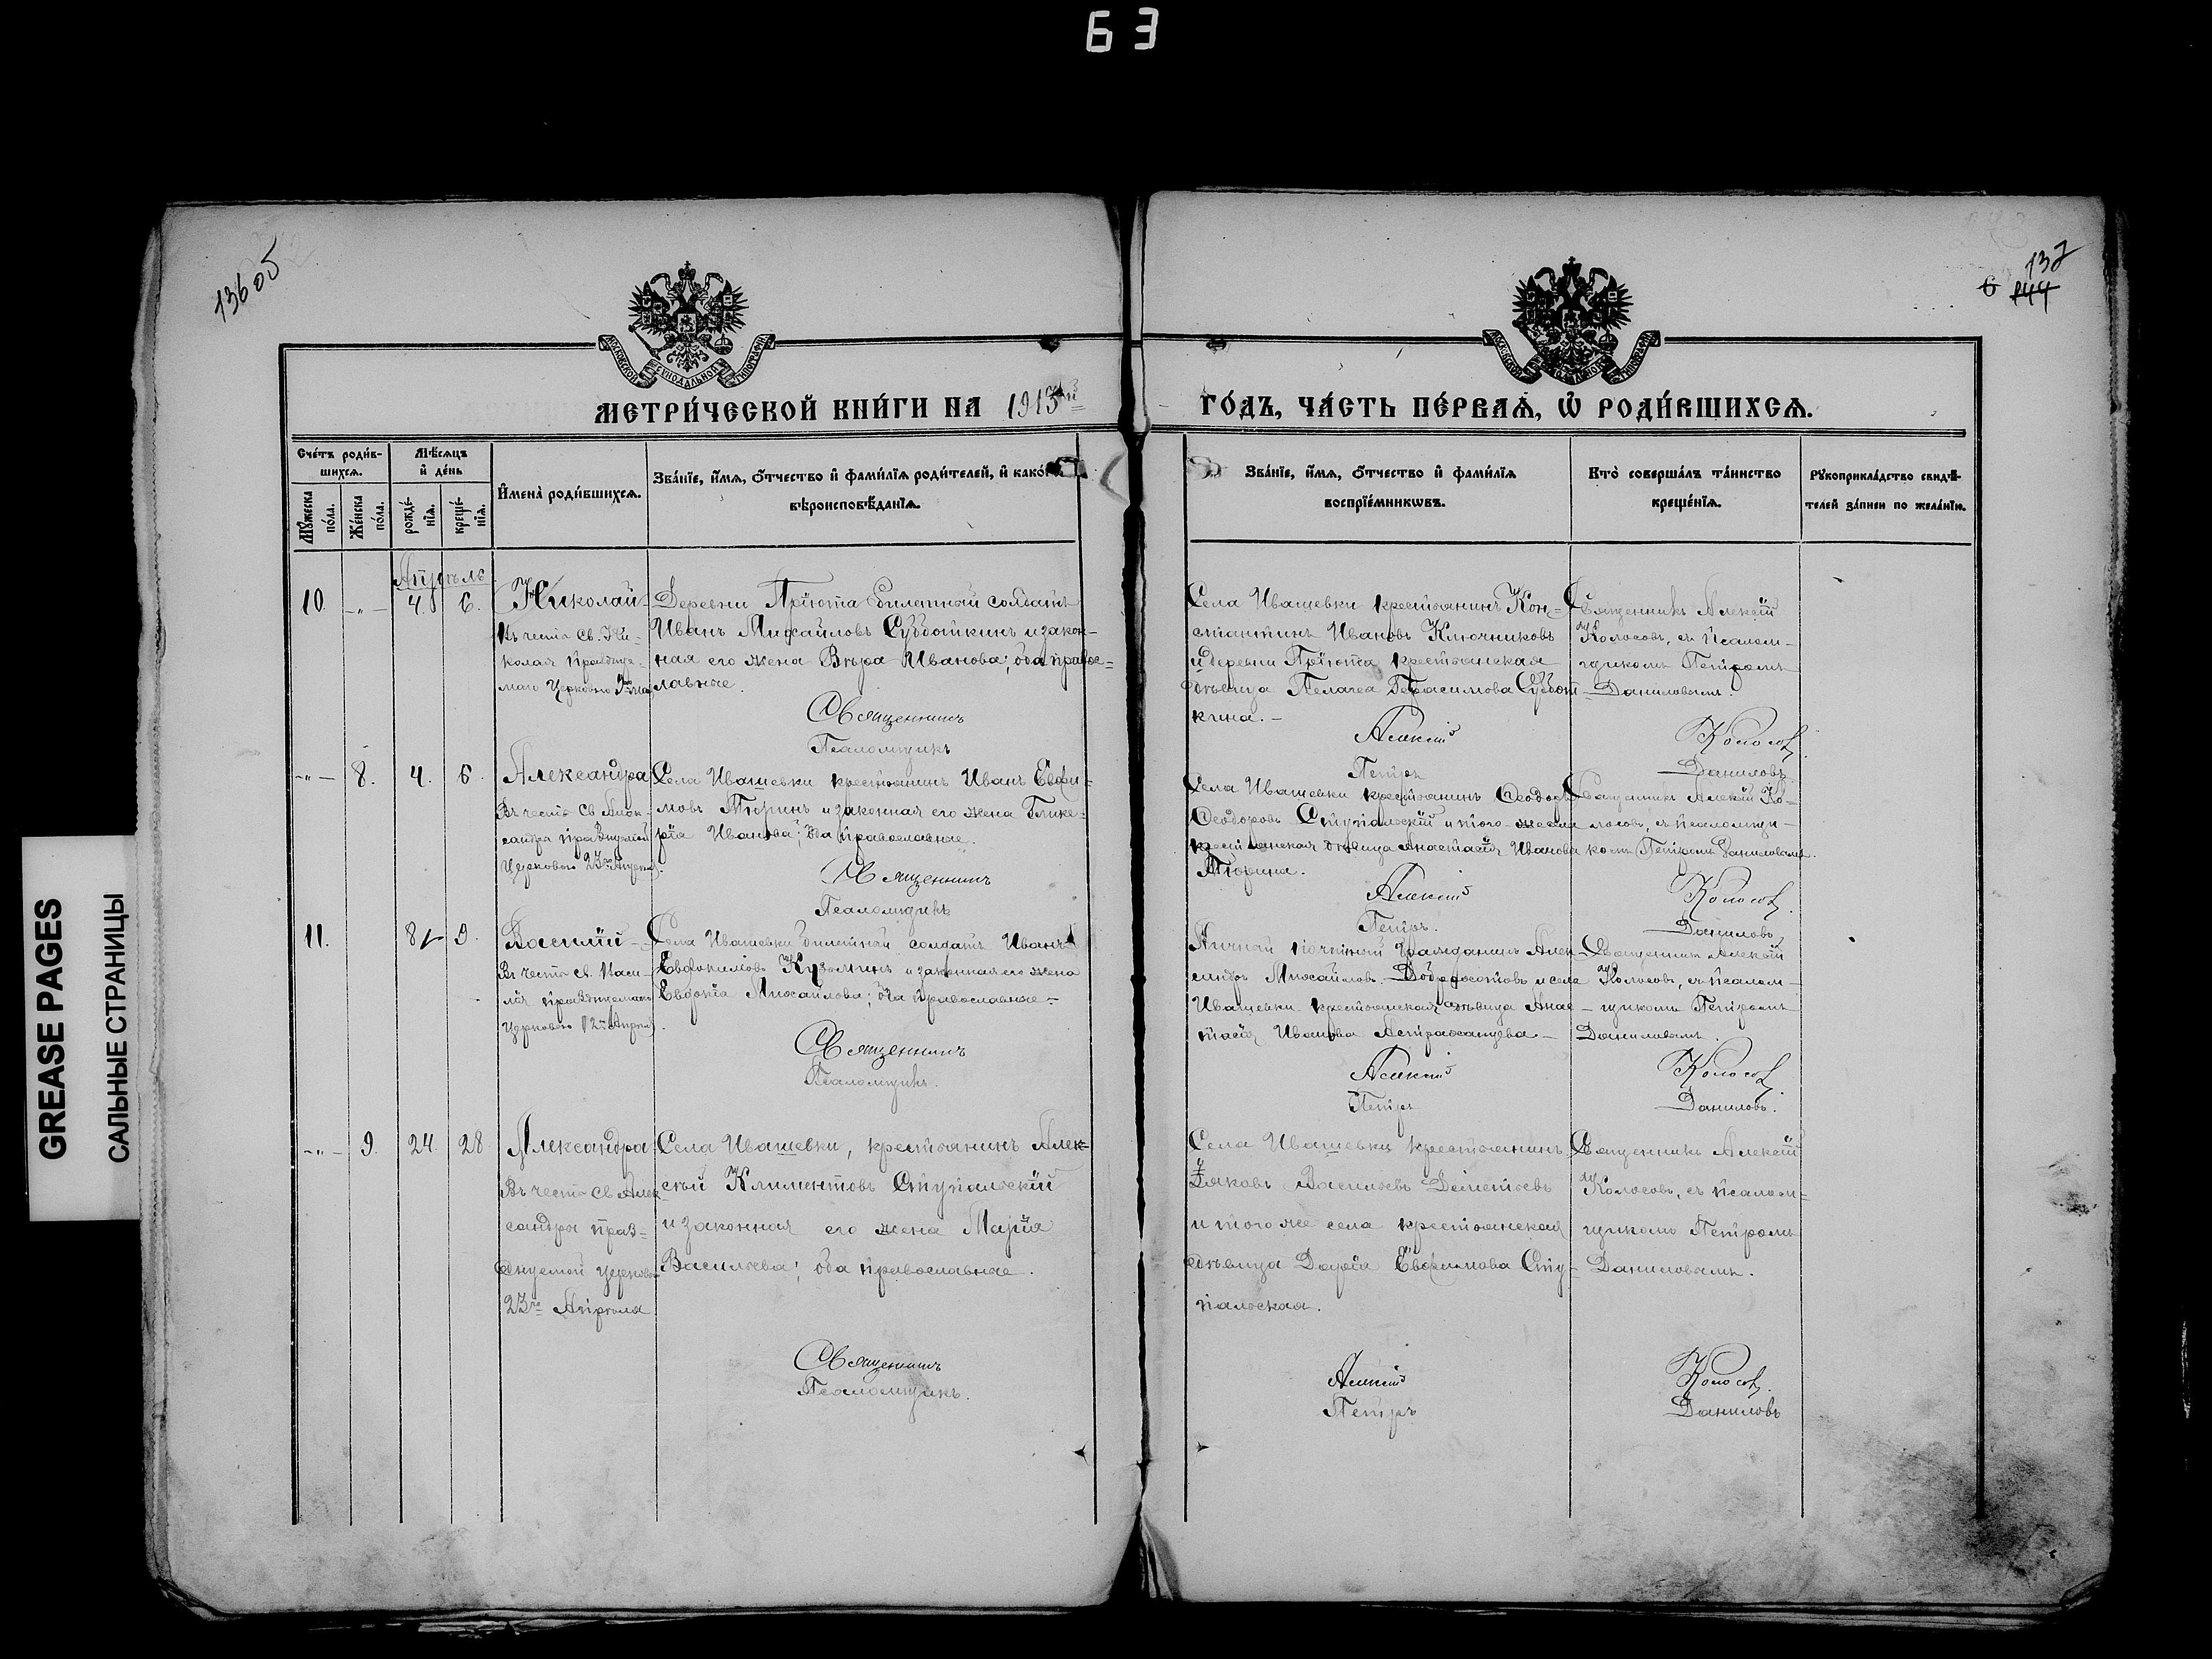 63
136 об
6 144
137
МЕТРИ́ЧЕСКОЙ КНИ́ГИ НА 1913й
ГО́ДЪ, ЧА́СТЬ ПЕ́РВАѦ, Ѡ҆ РОДИ́ВШИХСѦ.
Сче́тъ роди́в-
шихсѧ.
Мꙋ́жеска по́ла.
Же́нска по́ла.
Мѣ́сѧцъ
и҆ де́нь
рожде́-нїѧ.
креще́-нїѧ.
И҆мена̀ роди́вшихсѧ.
Зва́нїе, и҆́мѧ, ѻ҆́тчество и҆ фами́лїѧ роди́телей, и҆ како́гѡ
вѣроисповѣ́данїѧ.
Зва́нїе, и҆́мѧ, ѻ҆́тчество и҆ фами́лїѧ
воспрїе́мникѡвъ.
Кто̀ соверша́лъ та́инство
креще́нїѧ.
Рꙋкоприкла́дство свидѣ́-
телей за́писи по жела́нїю.
Апрѣль
10. -"- 4. 6. Николай
Въ честь св. Ни-
колая празднуе-
маго Церковью
Деревни Прiюта билетный солдатъ
Иванъ Михайловъ Субботкинъ и закон-
ная его жена Вѣра Иванова; оба правос-
лавные.
Священникъ
Псаломщикъ
Села Ивашевки крестьянинъ Кон-
стантинъ Ивановъ Ключниковъ
и деревни Прiюта крестьянская
дѣвица Пелагея Герасимова Суббот-
кина.
Алексiй
Петръ
Священникъ Алексiй
Колосовъ, съ псалом-
щикомъ Петромъ
Даниловымъ.
Колосовъ
Даниловъ
-"- 8. 4. 6. Александра
Въ честь св Алек-
сандры празднуемой
Церковью 23го Апреля.
Села Ивашевки крестьянинъ Иванъ Евфи-
мовъ Тюринъ и законная его жена Глике-
рiя Иванова; оба православные.
Священникъ
Псаломщикъ
Села Ивашевки крестьянинъ Ѳеодоръ
Ѳеодоровъ Ступальскiй и того-же села
крестьянская дѣвица Анастасiя Иванова
Тюрина.
Алексiй
Петръ.
Священникъ Алексiй Ко-
лосовъ, съ псаломщи-
комъ Петромъ Даниловымъ.
Колосовъ
Даниловъ
11. 8 9. Василiй
Въ честь св. Васи-
лiя празднуемаго
Церковью 12го Апреля.
Села Ивашевки билетный солдатъ Иванъ
Евдокимовъ Кузьминъ и законная его жена
Евдокiя Михайлова; оба православные.
Священникъ
Псаломщикъ.
Личный почетный гражданинъ Алек-
сандръ Михайловъ Доброхотовъ и села
Ивашевки крестьянская дѣвица Анас-
тасiя Иванова Астраханцева
Алексiй
Петръ
Священникъ Алексiй
Колосовъ, съ псалом-
щикомъ Петромъ
Даниловымъ.
Колосовъ
Даниловъ.
-"- 9. 24. 28 Александра
Въ честь св Алек-
сандры праз-
днуемой церковью
23го Апрѣля
Села Ивашевки, крестьянинъ Алек-
сѣй Климентовъ Ступальскiй
и законная его жена Марiя
Васильева; оба православные.
Священникъ
Псаломщикъ.
Села Ивашевки крестьянинъ
Яковъ Васильевъ Дементьевъ
и того же села крестьянская
дѣвица Дарiя Евфимова Сту-
пальская.
Алексiй
Петръ
Священникъ Алексiй
Колосовъ, съ псалом-
щикомъ Петромъ
Даниловымъ.
Колосовъ.
Даниловъ
GREASE PAGES
САЛЬНЫЕ СТРАНИЦЫ